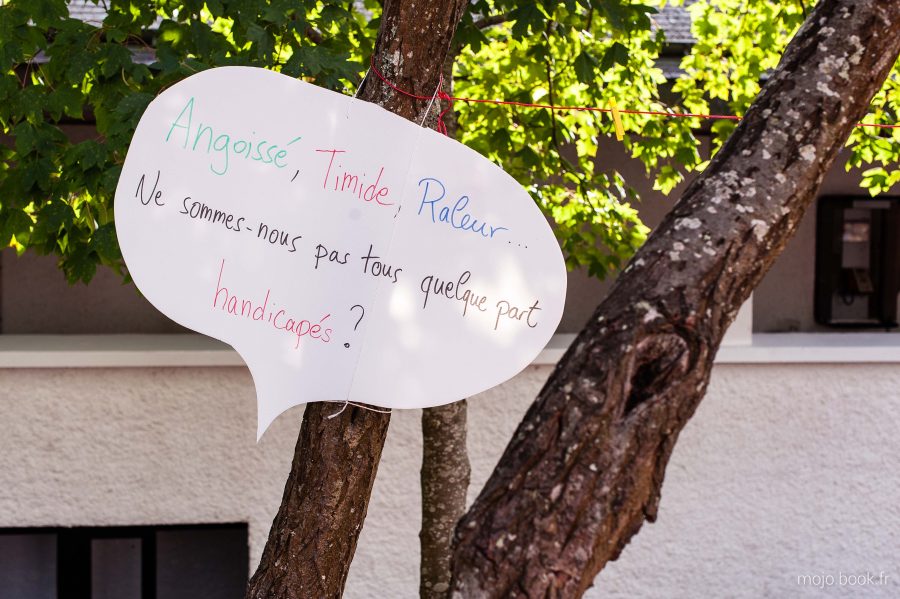 Angoissé, Timide, Raleur...
Ne sommes-nous pas tous quelque part
handicapés ?
mojo book.fr